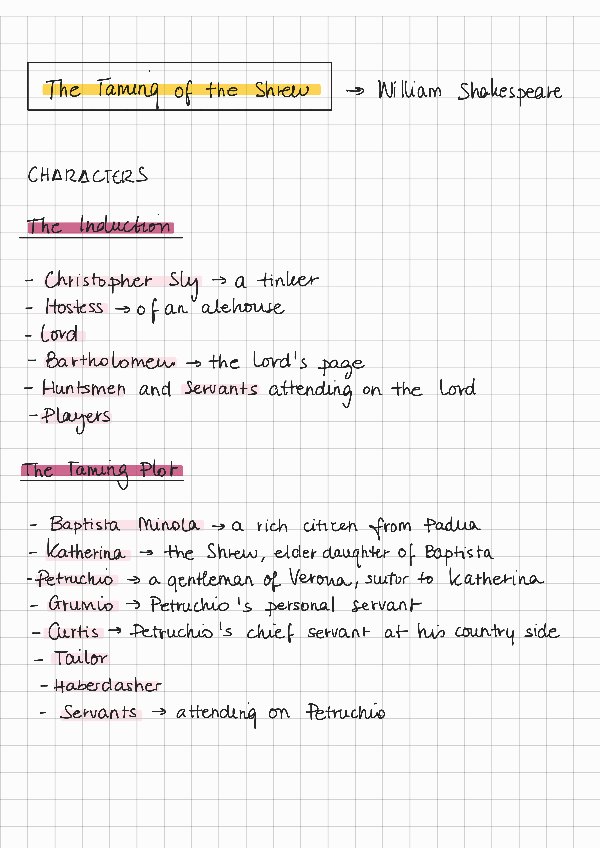 The Taming of the Shrew → William Shakespeare
CHARACTERS
The Induction
- Christopher Sly → a tinker
- Hostess → of an alehouse
- Lord
- Bartholomew → the Lord's page
- Huntsmen and Servants attending on the Lord
- Players
The Taming Plot
- Baptista Minola → a rich citizen from Padua
- Katherina → the Shrew, elder daughter of Baptista
- Petruchio → a gentleman of Verona, suitor to Katherina
- Grumio → Petruchio's personal servant
- Curtis → Petruchio's chief servant at his country side
- Tailor
- Haberdasher
- Servants → attending on Petruchio